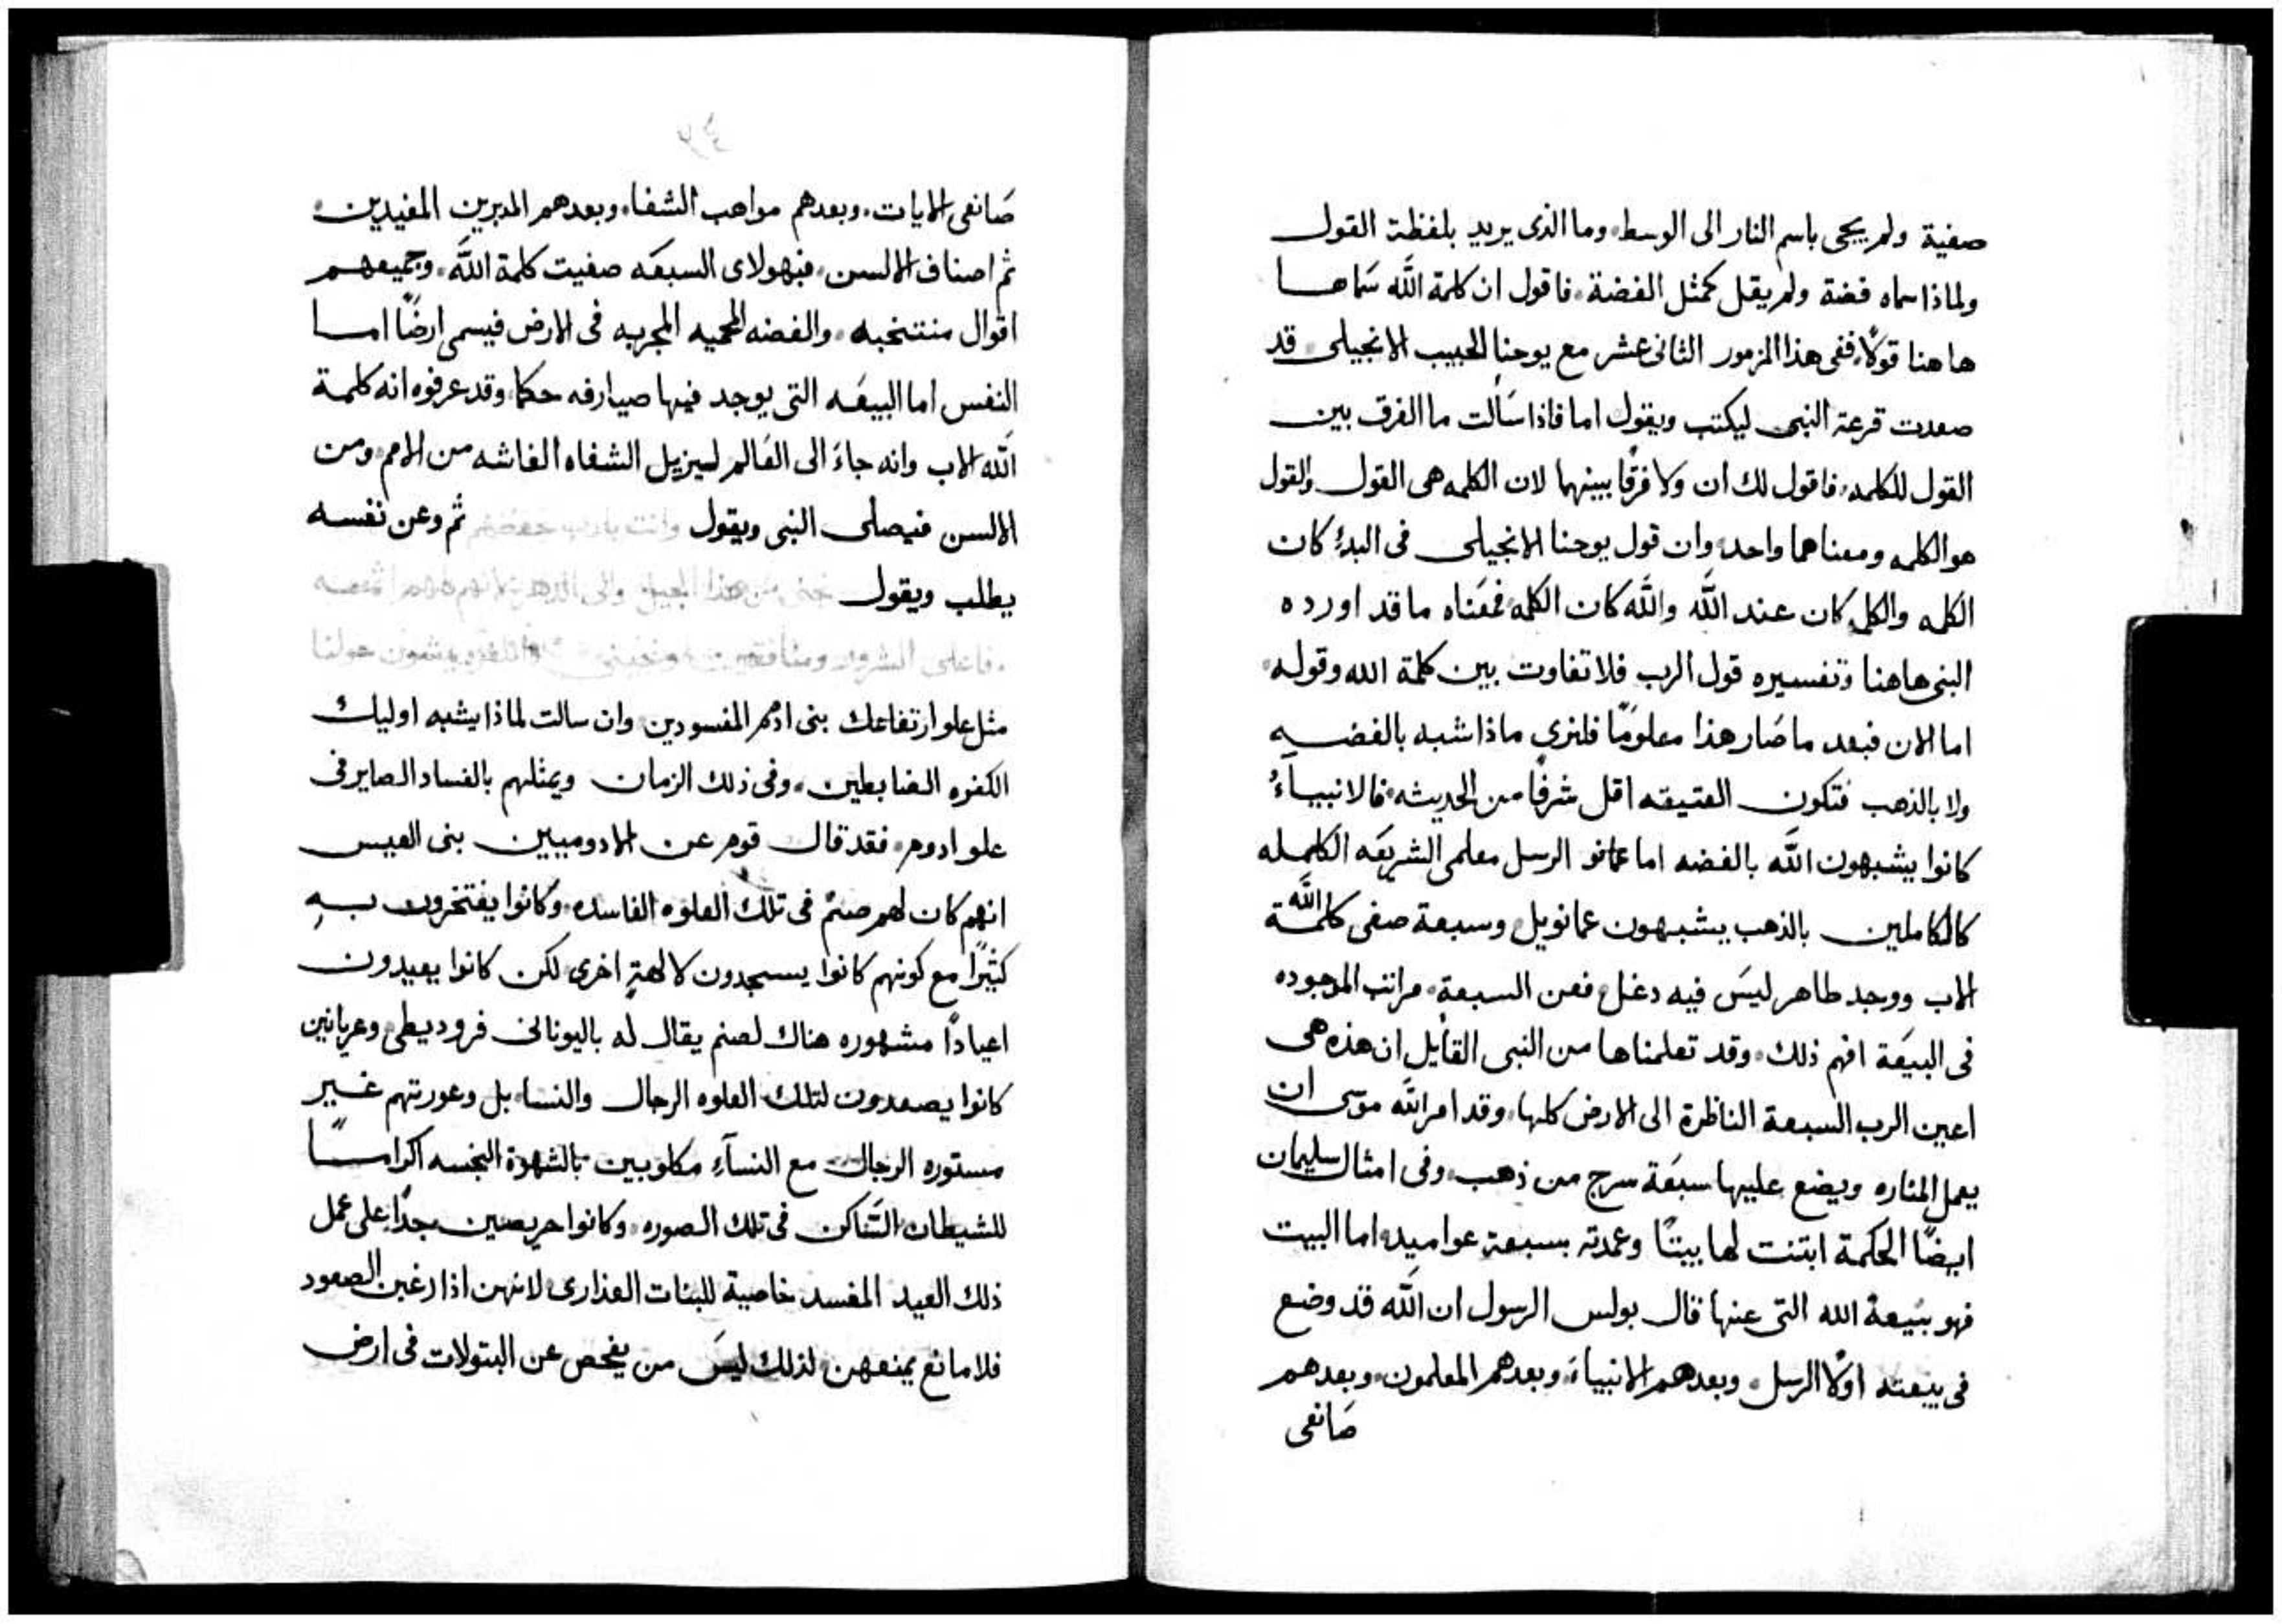 صفية ولم يجى باسم النار الى الوسط. وما الذى يريد بلفظة القول
ولماذا سماه فضة ولم يقل كمثل الفضة. فاقول ان كلمة الله سَماها
هاهنا قولًا. ففى هذا المزمور الثانى عشر مع يوحنا الحبيب الانجيلى. قد
صعدت قرعة النبى ليكتب ويقول اما فاذا سَالت ما الفرق بين
القول للكلمه. فاقول لك ان ولا فرقًا بينهما لان الكلمه هى القول والقول
هو الكلمه ومعناهما واحد. وان قول يوحنا الانجيلى فى البدءِ كان
الكلمه والكلمه كان عند الله والله كان الكلمه فمعَناه ما قد اورده
النبى هاهنا وتفسيره قول الرب فلا تفاوت بين كلمة الله وقوله.
اما الان فبعد ما صَار هذا معلومًا فلنرى ماذا شبه بالفضه
ولا بالذهب فتكون العتيقه اقل شرفًا من الحديثه. فالانبياءُ
كانوا يشبهون الله بالفضه اما الرسل معلمى الشريعَه الكامله
كالكاملين بالذهب يشبهون عمانويل. وسبعة صفى كلمة الله
الاب ووجد طاهر ليسَ فيه دغل. فعن السبعة. مراتب الموجوده
فى البيعَة افهم ذلك. وقد تعلمناها من النبى القايل ان هذه هى
اعين الرب السبعة الناظرة الى الارض كلها. وقد امر الله موسى ان
يعمل المناره ويضع عليها سبعَة سرج من ذهب. وفى امثال سليمان
ايضًا الحكمة ابتنت لها بيتًا وعمدته بسبعة عواميد. اما البيت
فهو بيعة الله التى عنها قال بولس الرسول ان الله قد وضع
فى بيعته اولًا الرسل. وبعدهم الانبياءَ. وبعدهم المعلمون. وبعدهم
صَانعى
صَانعى الايات. وبعدهم مواهب الشفا. وبعدهم المدبرين المفيدين.
ثم اصناف الالسن. فبهولاى السبعَه صفيت كلمة الله. وجميعهم
اقوال منتخبه. والفضه المحميه المجربه فى الارض فيسمى ارضًا اما
النفس اما البيعَه التى يوجد فيها صيارفه حكما. وقد عرفوه انه كلمة
الله الاب وانه جاءَ الى العَالم ليزيل الشفاه الغاشه من الامم. ومن
الالسن فيصلى النبى ويقول وانت يارب ثم وعن نفسه
يطلب ويقول من هذا الجيل والى الدهر
حولنا
مثل علو ارتفاعك بنى ادم المفسودين. وان سالت لماذا يشبه اوليك
الكفره الضابطين. وفى ذلك الزمان ويمثلهم بالفساد الصاير فى
علو ادوم. فقد قال قوم عن الادوميين بنى العيس
انهم كان لهم صنمٌ فى تلك العلوه الفاسده. وكانوا يفتخرون بهِ
كثيرًا مع كونهم كانوا يسجدون لالهةٍ اخرى. لكن كانوا يعيدون
اعيادًا مشهوره هناك لصنم يقال له باليونانى فروديطى. وعريانين
كانوا يصعدون لتلك العلوه الرجال والنسا. بل وعورتهم غير
مستوره الرجال مع النسآءِ مكلوبين بالشهوة النجسه اكرامًا
للشيطان السَّاكن فى تلك الصوره. وكانوا حريصين جدًا على عمل
ذلك العيد المفسد خاصية للبنات العذارى. لانهن اذا رغبن الصعود
فلا مانع يمنعهن. لذلك ليسَ من يفحص عن البتولات فى ارض